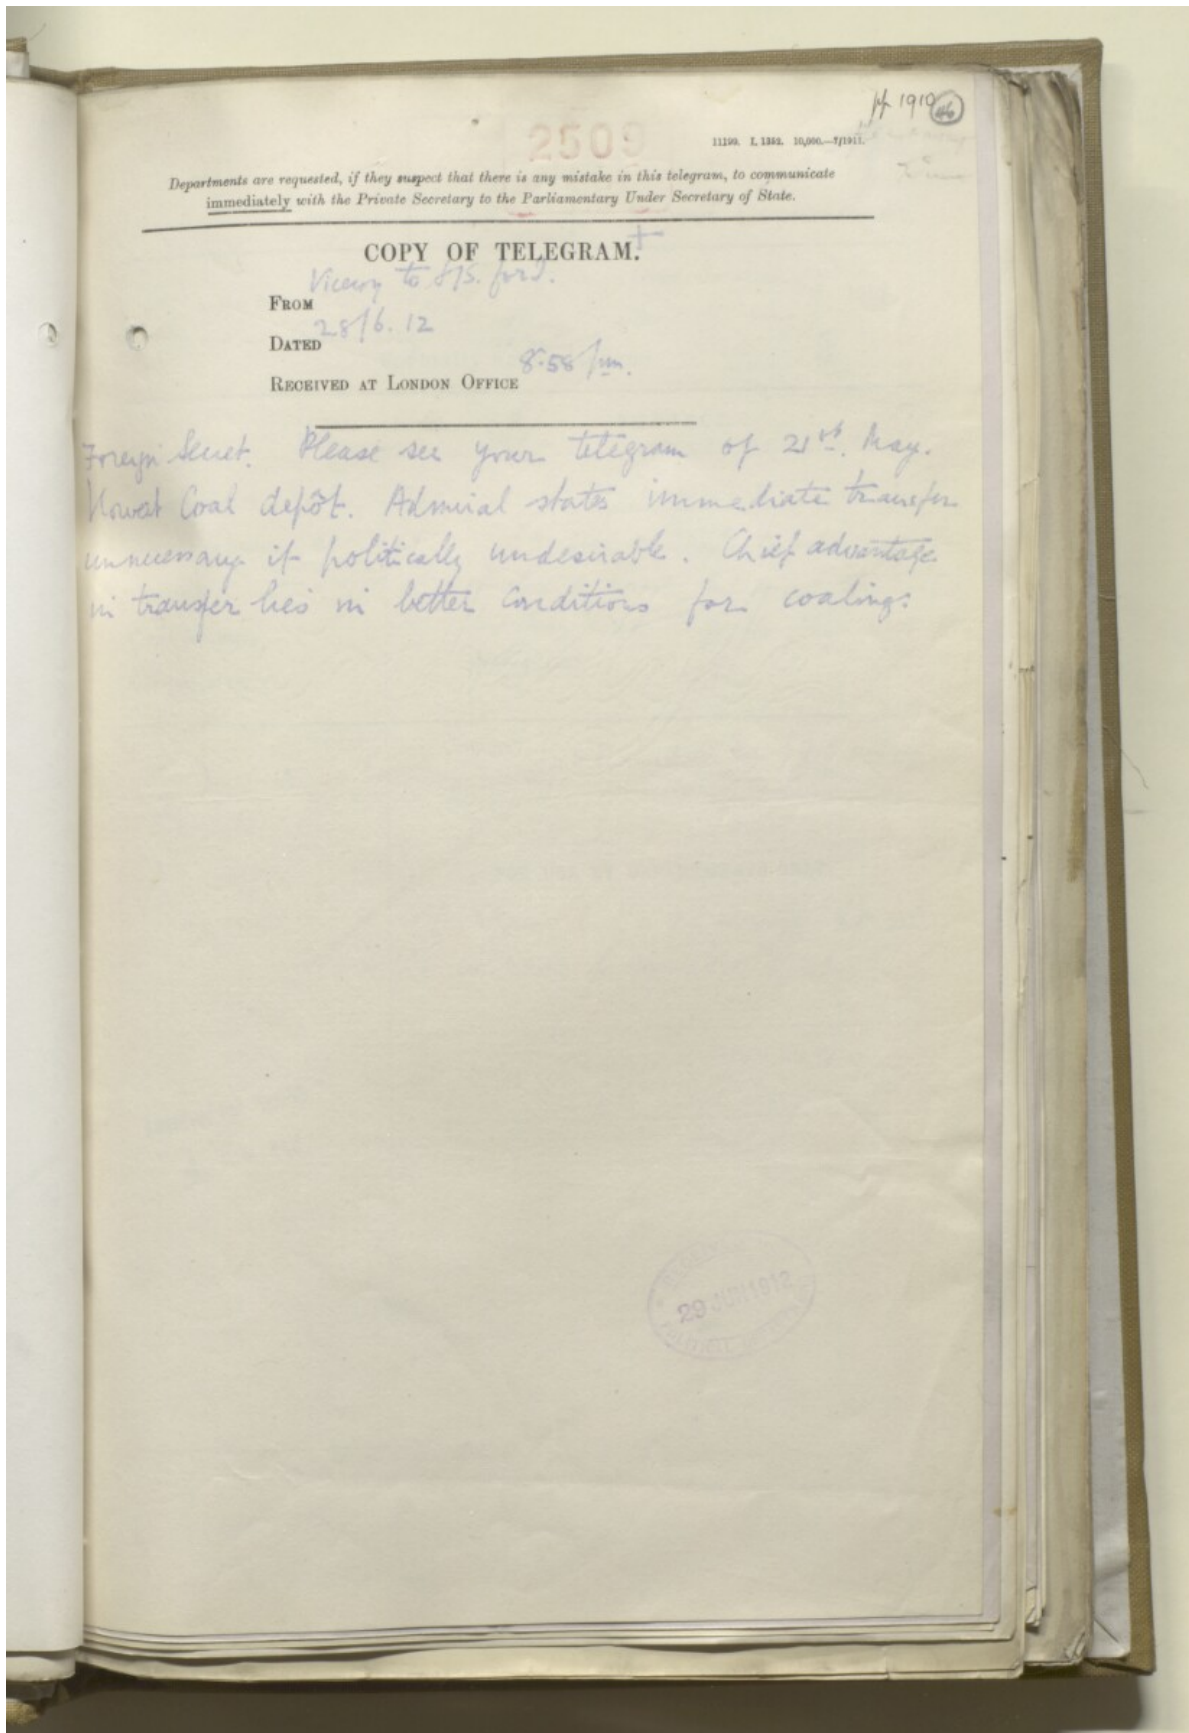 pp 1910 46
2509
11199. I. 1352. 10,000.—7/1911.
Departments are requested, if they suspect that there is any mistake in this telegram, to communicate
immediately with the Private Secretary to the Parliamentary Under Secretary of State.
COPY OF TELEGRAM.
Viceroy to S/S. for I.
FROM
28/6.12
DATED
8.58 pm.
RECEIVED AT LONDON OFFICE
Foreign Secret. Please see your telegram of 21st. May.
Coal depôt. Admiral states immediate transfer
unnecessary if politically undesirable. Chief advantage
in transfer lies in better conditions for coaling.
29 JUN 1912